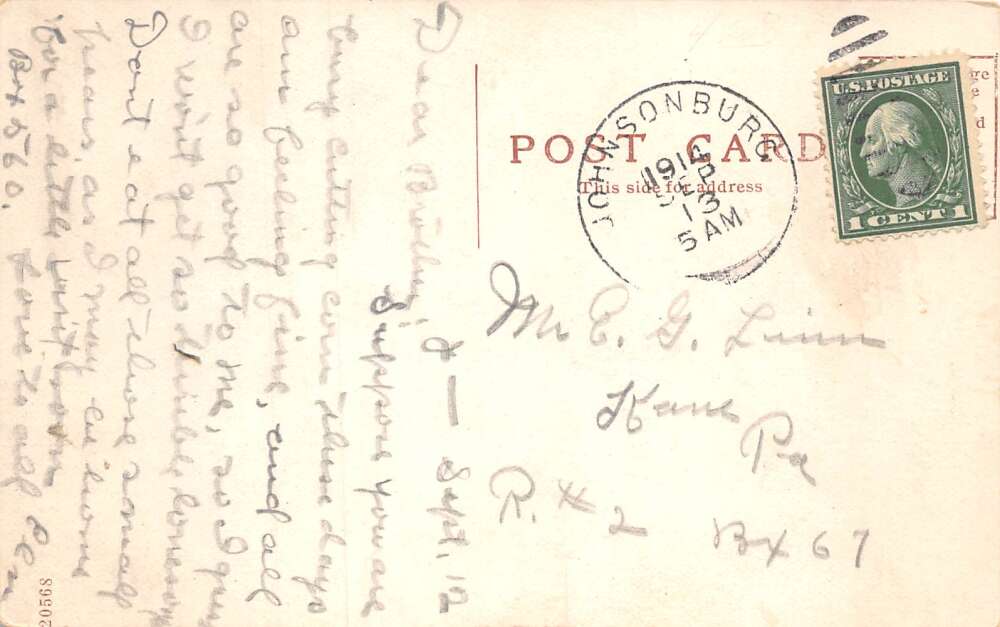 Dear Brother, J — Sept. 12
Suppose you are
busy cutting corn these days
am feeling fine, and all
are so good to me, so I guess
I won't get so terrible lonesome
Don't eat all those small
pears, as I may be home
for a little visit soon
Box 560. Love to all
20568
POST CARD
This side for address
JOHNSONBURG
SEP
13
5 AM
U.S. POSTAGE
1 CENT 1
Mr. E. G. Linn
Kane
Pa
R. #2 Bx 67